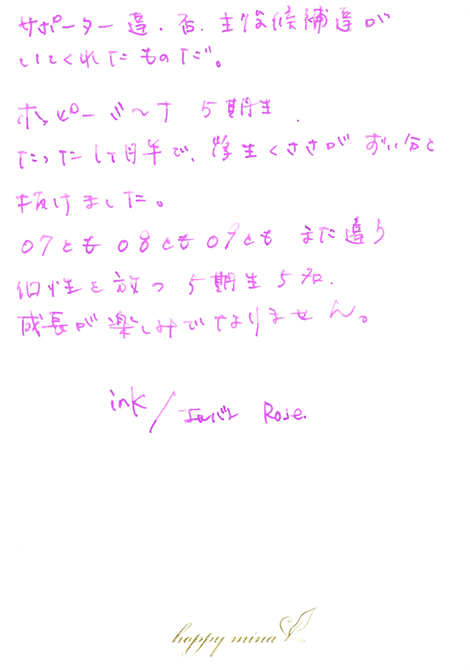 サポーター達、否、主役候補達が
いてくれたものだ。
ホッピービ〜ナ 5期生、
たった1ヶ月半で、学生くささがずい分と
抜けました。
07とも08とも09ともまた違う
個性を放つ5期生5名、
成長が楽しみでなりません。
ink/エルバン Rose.
happy mina